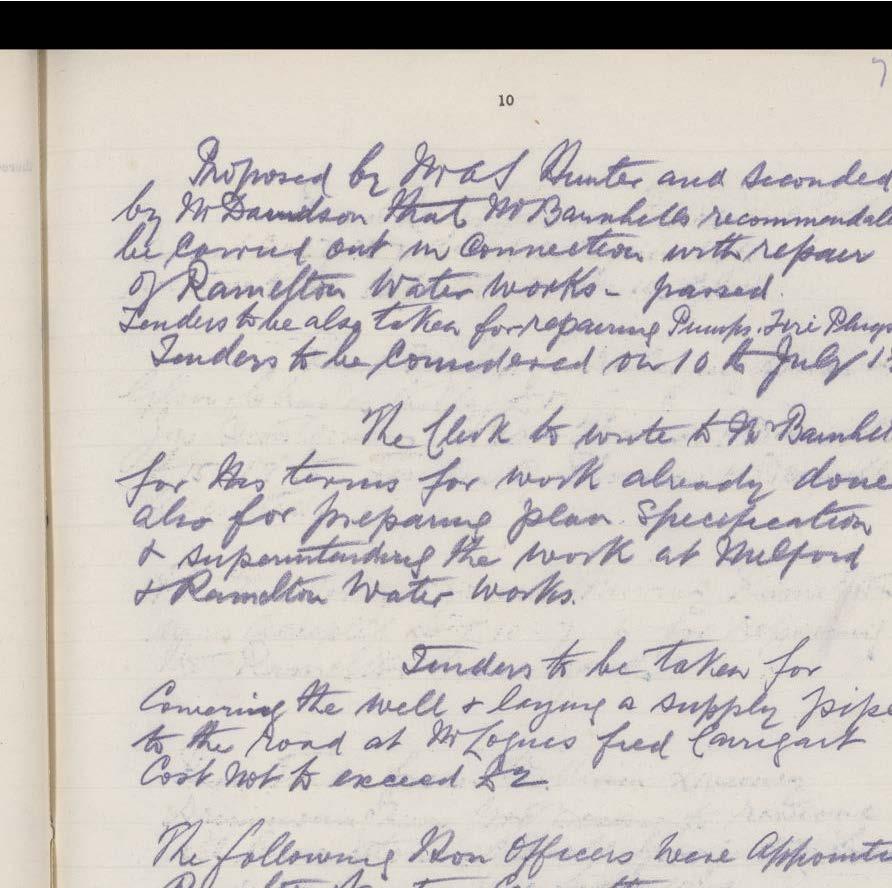 7
10
Proposed by Mr A S Hunter and seconded
by Mr Davidson that Mr Barnhills recommendati
be carried out in connection with repair
of Ramelton Water Works - passed.
Tenders to be also taken for repairing Pumps. Fire Plugs
Tenders to be considered on 10th July 1
The Clerk to write to Mr Barnhill
for his terms for work already done
also for preparing plan Specification
& superintending the work at Milford
& Ramelton Water Works.
Tenders to be taken for
Covering the well & laying a supply pipe
to the road at Mr Logues Carrigart
Cost not to exceed £2
The following Hon Officers were Appointe